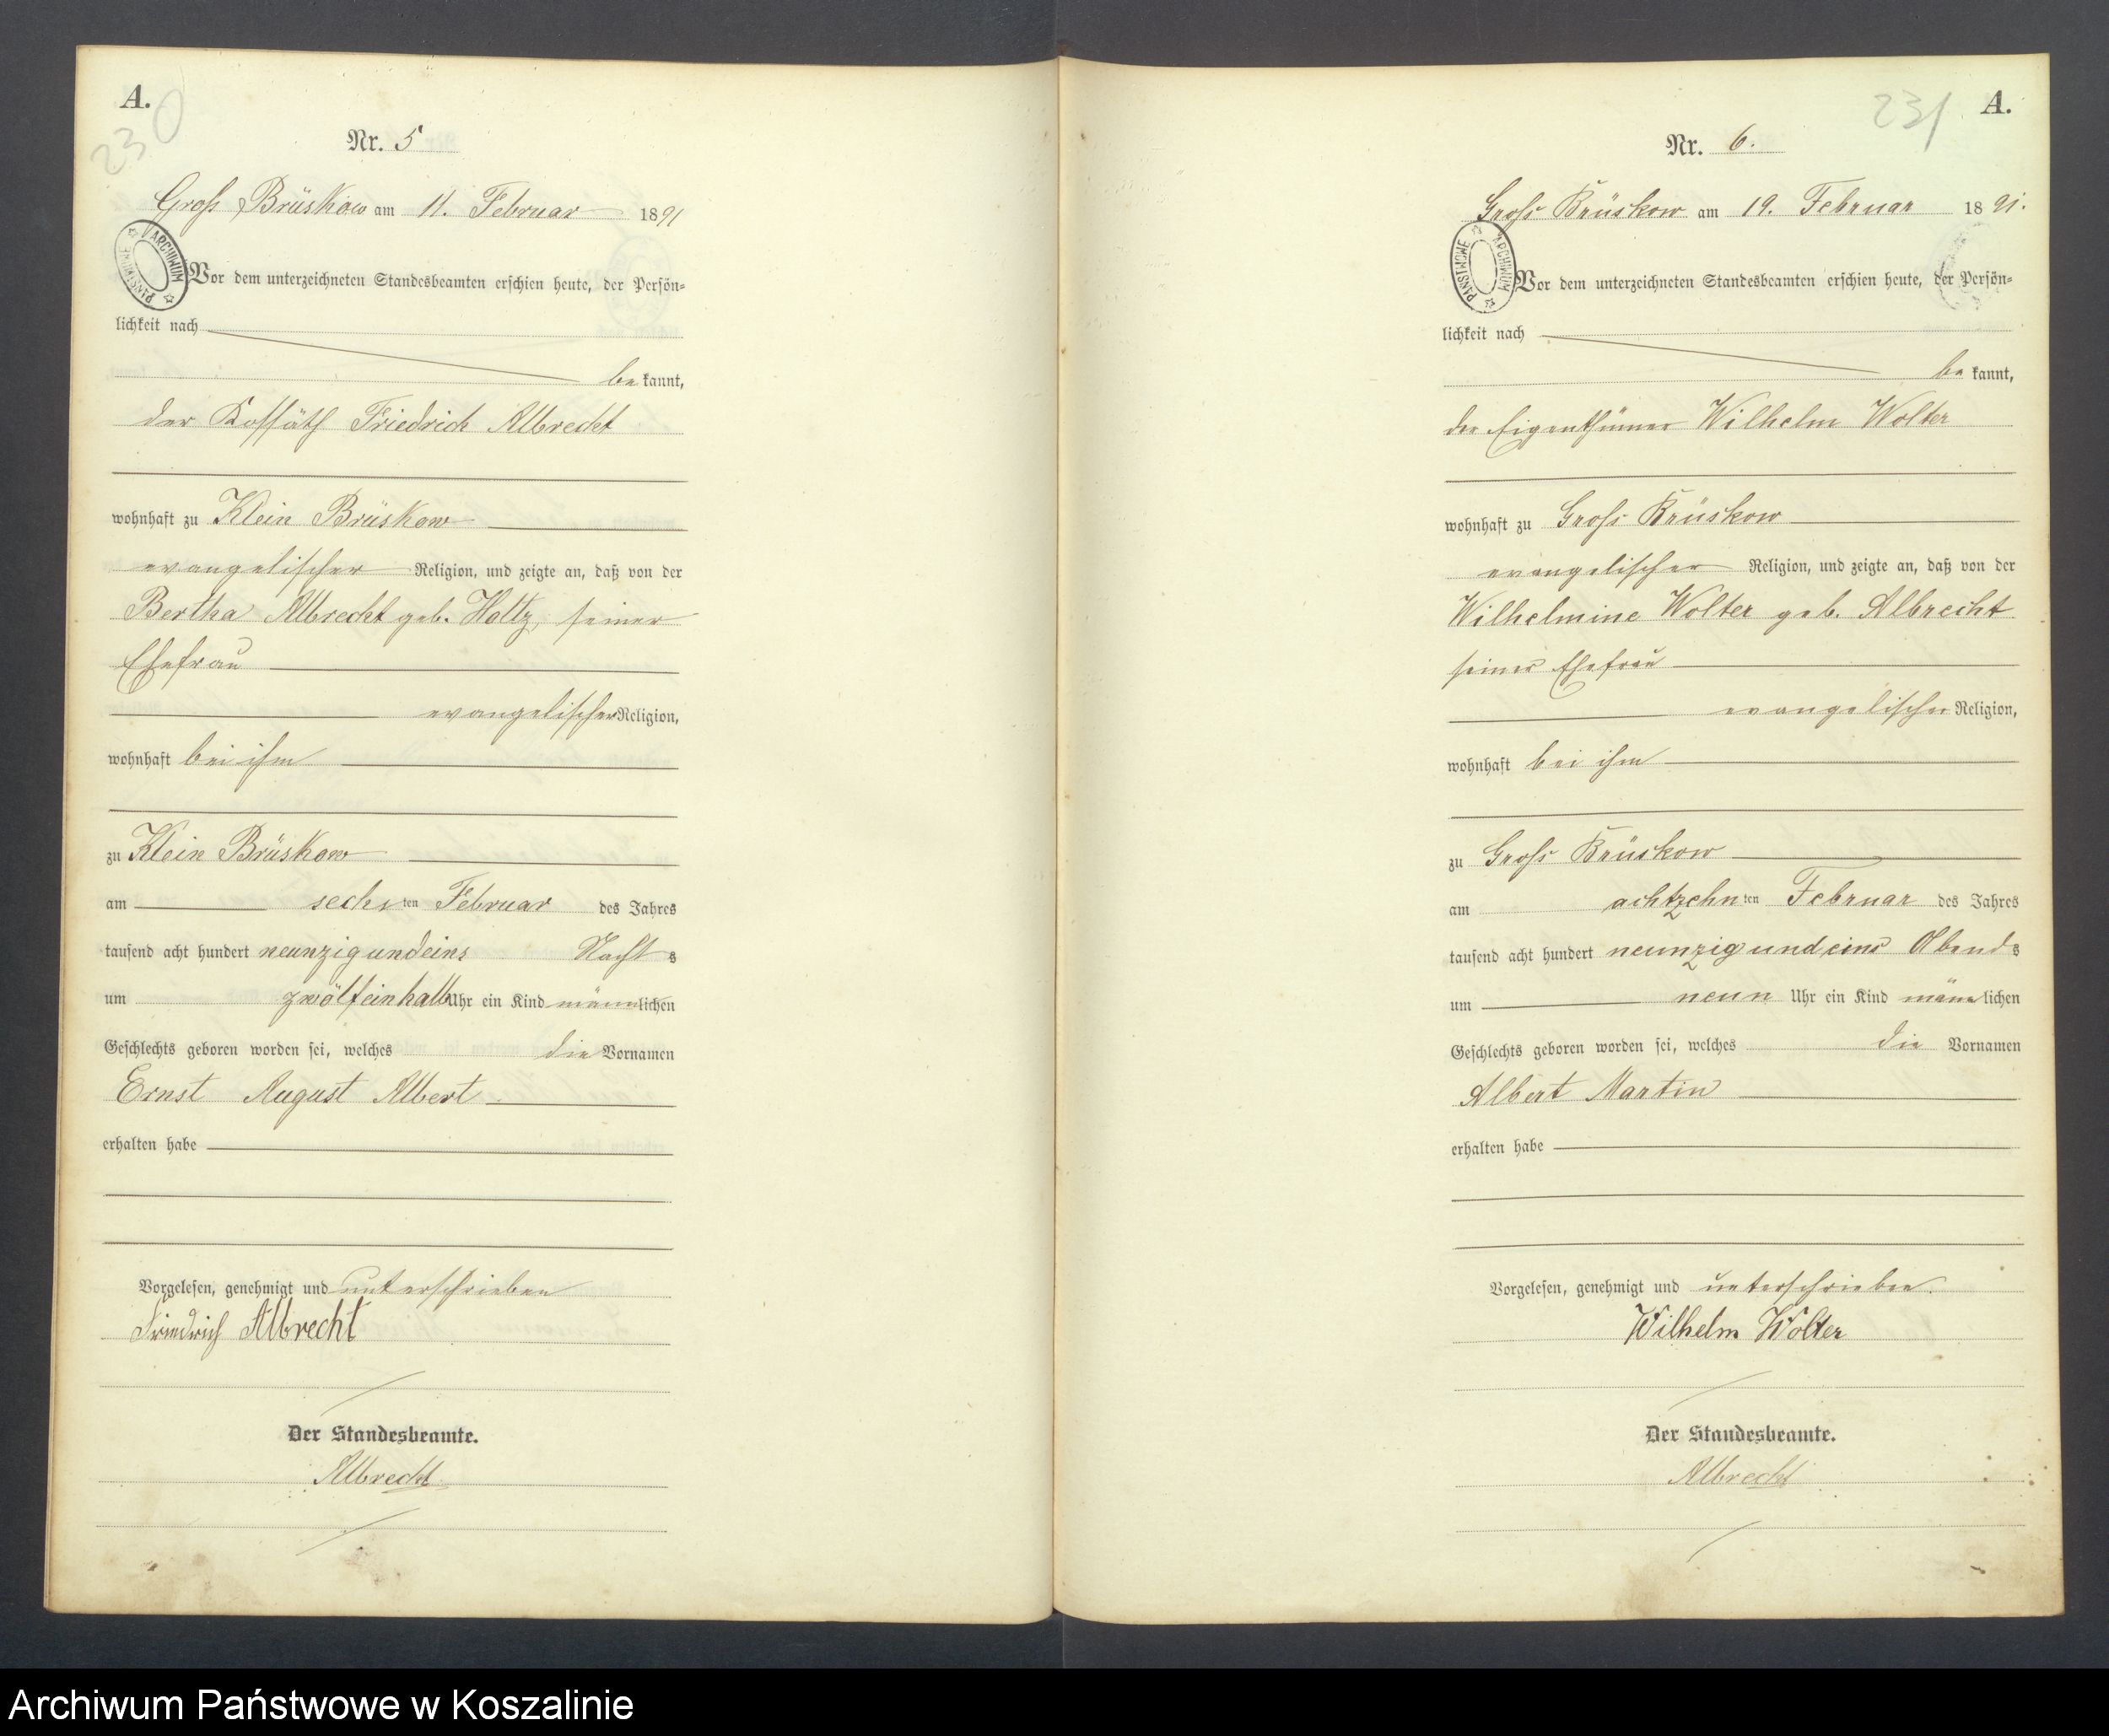 A.
230
Nr. 5
Groß Brüskow am 11. Februar 1891
ARCHIWUM PAŃSTWOWE
Vor dem unterzeichneten Standesbeamten erschien heute, der Persön=
lichkeit nach
bekannt,
der Kossäth Friedrich Albrecht
wohnhaft zu Klein Brüskow
evangelischer Religion, und zeigte an, daß von der
Bertha Albrecht geb. Holtz, seiner
Ehefrau
evangelischer Religion,
wohnhaft bei ihm
zu Klein Brüskow
am sechsten Februar des Jahres
tausend acht hundert neunzigundeins Nachts
um zwölfeinhalb Uhr ein Kind männlichen
Geschlechts geboren worden sei, welches die Vornamen
Ernst August Albert
erhalten habe
Vorgelesen, genehmigt und unterschrieben
Friedrich Albrecht
Der Standesbeamte.
Albrecht
231 A.
Nr. 6.
Groß Brüskow am 19. Februar 1891.
ARCHIWUM PAŃSTWOWE
Vor dem unterzeichneten Standesbeamten erschien heute, der Persön=
lichkeit nach
bekannt,
der Eigenthümer Wilhelm Wolter
wohnhaft zu Groß Brüskow
evangelischer Religion, und zeigte an, daß von der
Wilhelmine Wolter geb. Albrecht
seiner Ehefrau
evangelischer Religion,
wohnhaft bei ihm
zu Groß Brüskow
am achtzehnten Februar des Jahres
tausend acht hundert neunzig und eins Abends
um neun Uhr ein Kind männlichen
Geschlechts geboren worden sei, welches die Vornamen
Albert Martin
erhalten habe
Vorgelesen, genehmigt und unterschrieben.
Wilhelm Wolter
Der Standesbeamte.
Albrecht
Archiwum Państwowe w Koszalinie